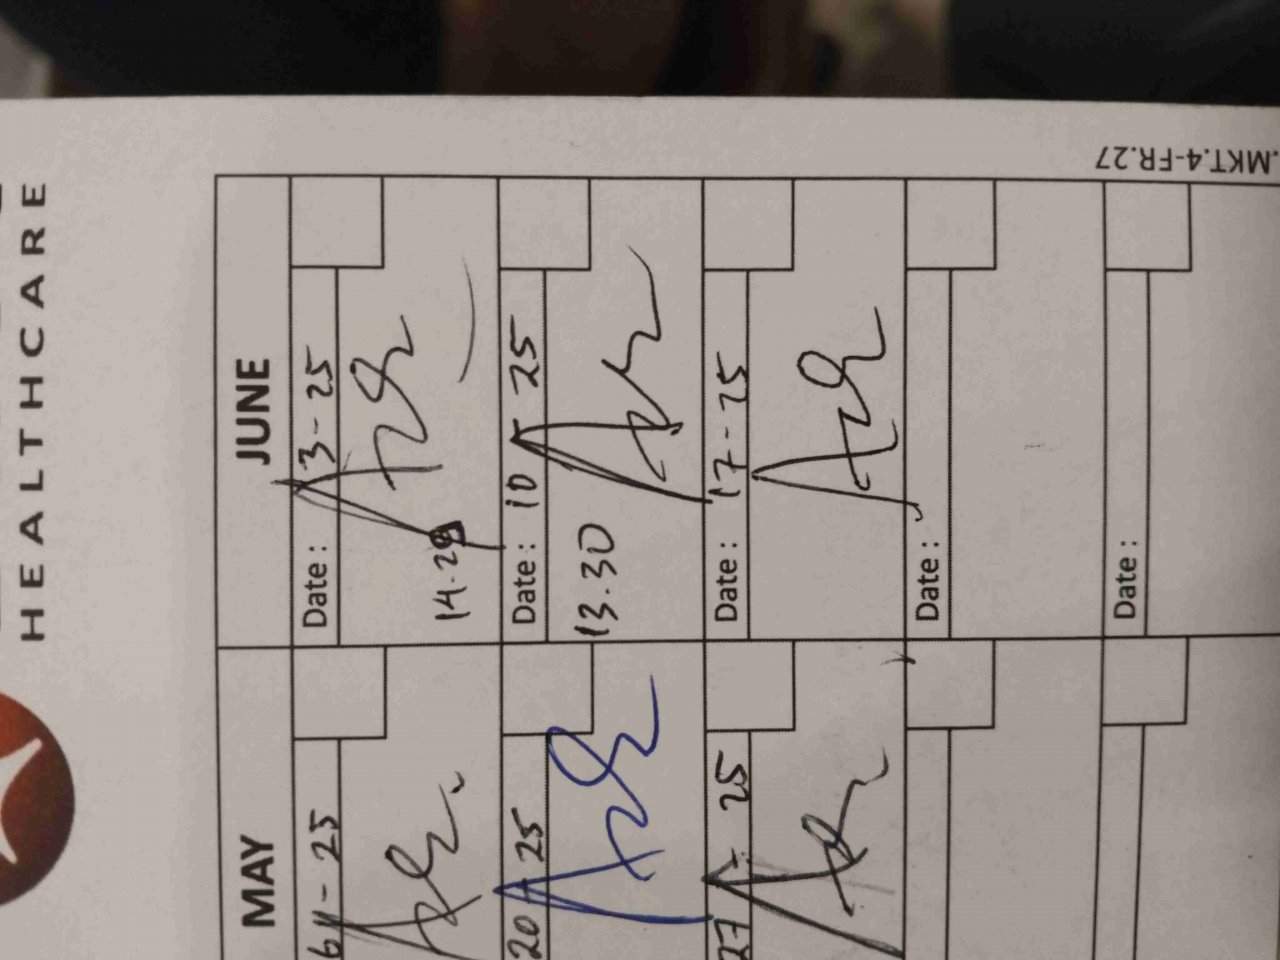 HEALTHCARE
.MKT.4-FR.27
MAY
JUNE
25
Date : 3-25
14.29
20 25
Date : 10 25
13.30
27 - 25
Date : 17-25
Date :
Date :